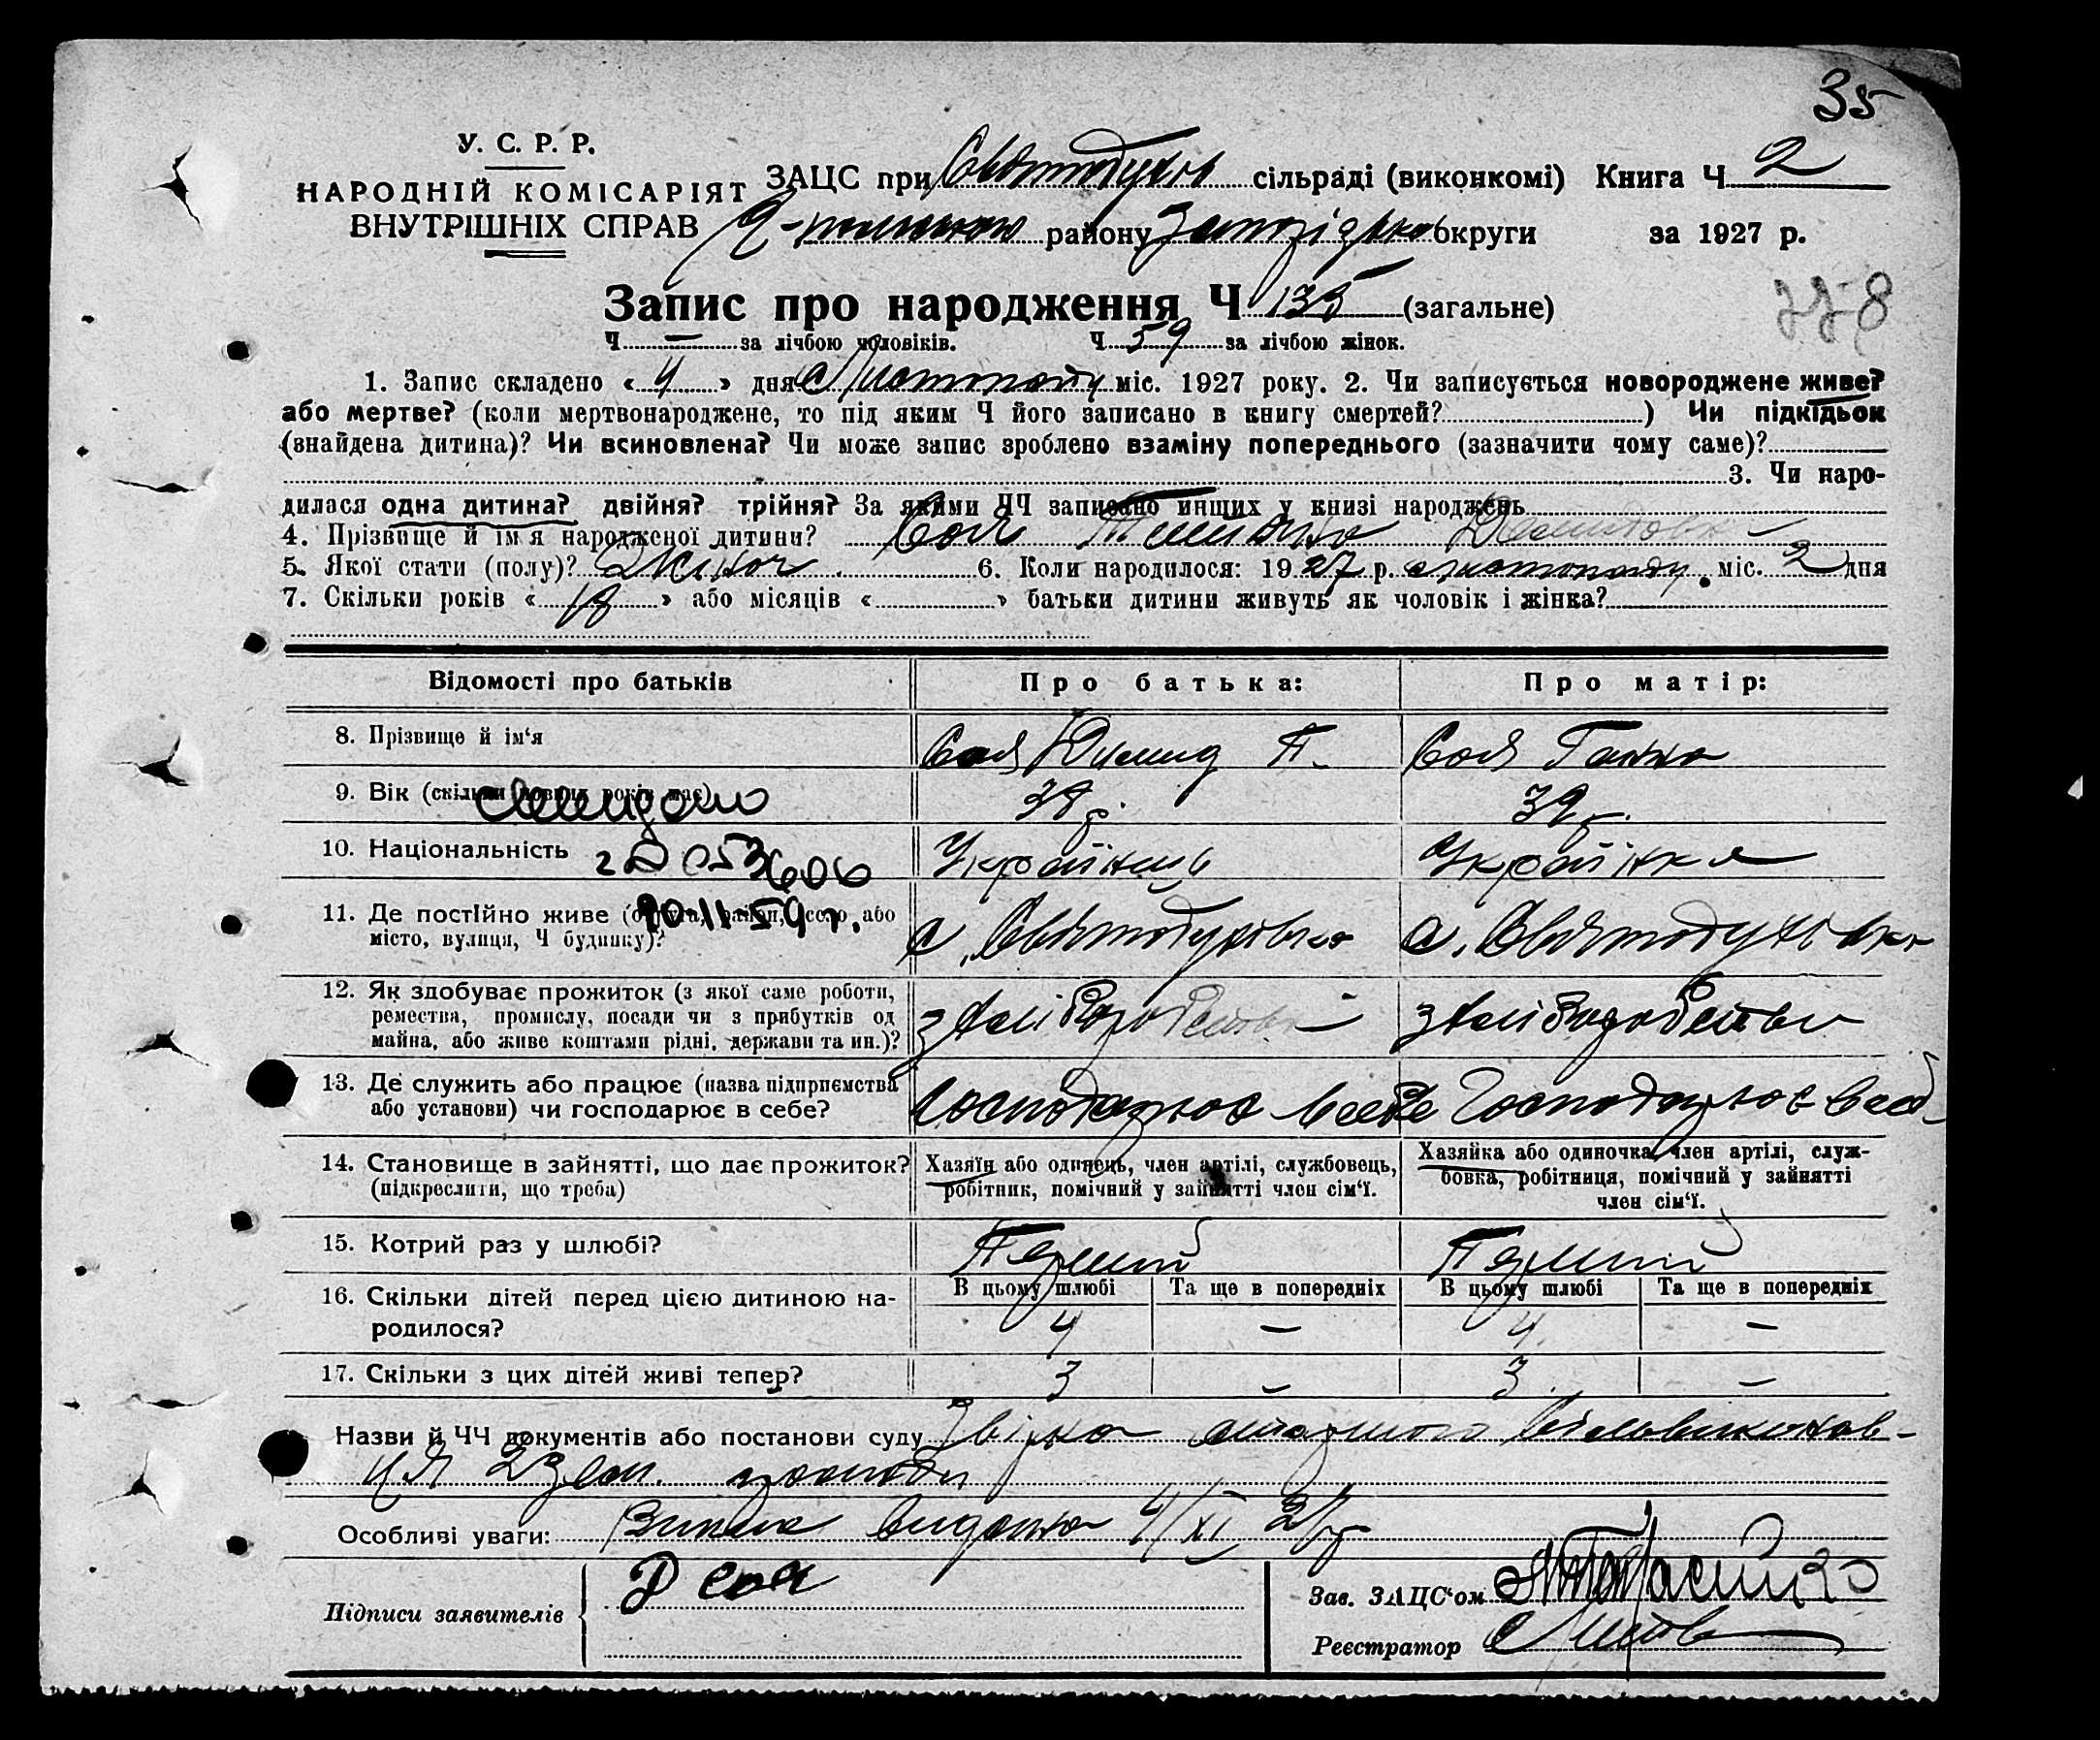 35
У. С. Р. Р.
НАРОДНІЙ КОМІСАРІЯТ
ВНУТРІШНІХ СПРАВ
ЗАЦС при Святодухів сільраді (виконкомі) Книга Ч 2
району Запорізько округи за 1927 р.
Запис про народження Ч 135 (загальне)
Ч — за лічбою чоловіків. Ч 59 за лічбою жінок.
1. Запис складено « 4 » дня Листопаду міс. 1927 року. 2. Чи записується новороджене живе?
або мертве? (коли мертвонароджене, то під яким Ч його записано в книгу смертей? ) Чи підкідьок
(знайдена дитина)? Чи всиновлена? Чи може запис зроблено взаміну попереднього (зазначити чому саме)?
3. Чи наро-
дилася одна дитина? двійня? трійня? За якими ЧЧ записано инщих у книзі народжень
4. Прізвище й ім'я народженої дитини? Соя Демидовн
5. Якої стати (полу)? Жіноч. 6. Коли народилося: 1927 р. листопаду міс. 2 дня
7. Скільки років « 18 » або місяців « » батьки дитини живуть як чоловік і жінка?
Відомості про батьків Про батька: Про матір:
8. Прізвище й ім'я Соя Димид П. Соя Ганна
9. Вік (скільки повних років має) 38 р. 39 р.
10. Національність Українець Українка
2 053606
11. Де постійно живе (округа, район, село або
місто, вулиця, Ч будинку)? с. Святодухівка с. Святодухівка
20-11-59 г.
12. Як здобуває прожиток (з якої саме роботи,
ремества, промислу, посади чи з прибутків од
майна, або живе коштами рідні, держави та ин.)? з хліборобства з хліборобства
13. Де служить або працює (назва підприємства
або установи) чи господарює в себе? Господарює в себе Господарює в себе
14. Становище в зайнятті, що дає прожиток?
(підкреслити, що треба)
Хазяїн або одинець, член артілі, службовець,
робітник, помічний у зайнятті член сім'ї.
Хазяйка або одиночка, член артілі, служ-
бовка, робітниця, помічний у зайнятті
член сім'ї.
15. Котрий раз у шлюбі? Перший Перший
16. Скільки дітей перед цією дитиною на-
родилося?
В цьому шлюбі Та ще в попередніх В цьому шлюбі Та ще в попередніх
4 — 4 —
17. Скільки з цих дітей живі тепер? 3 — 3 —
Назви й ЧЧ документів або постанови суду
Особливі уваги: Випись видана 4/XI 27р
Підписи заявителів Д Соя
Зав. ЗАЦС'ом
Реєстратор